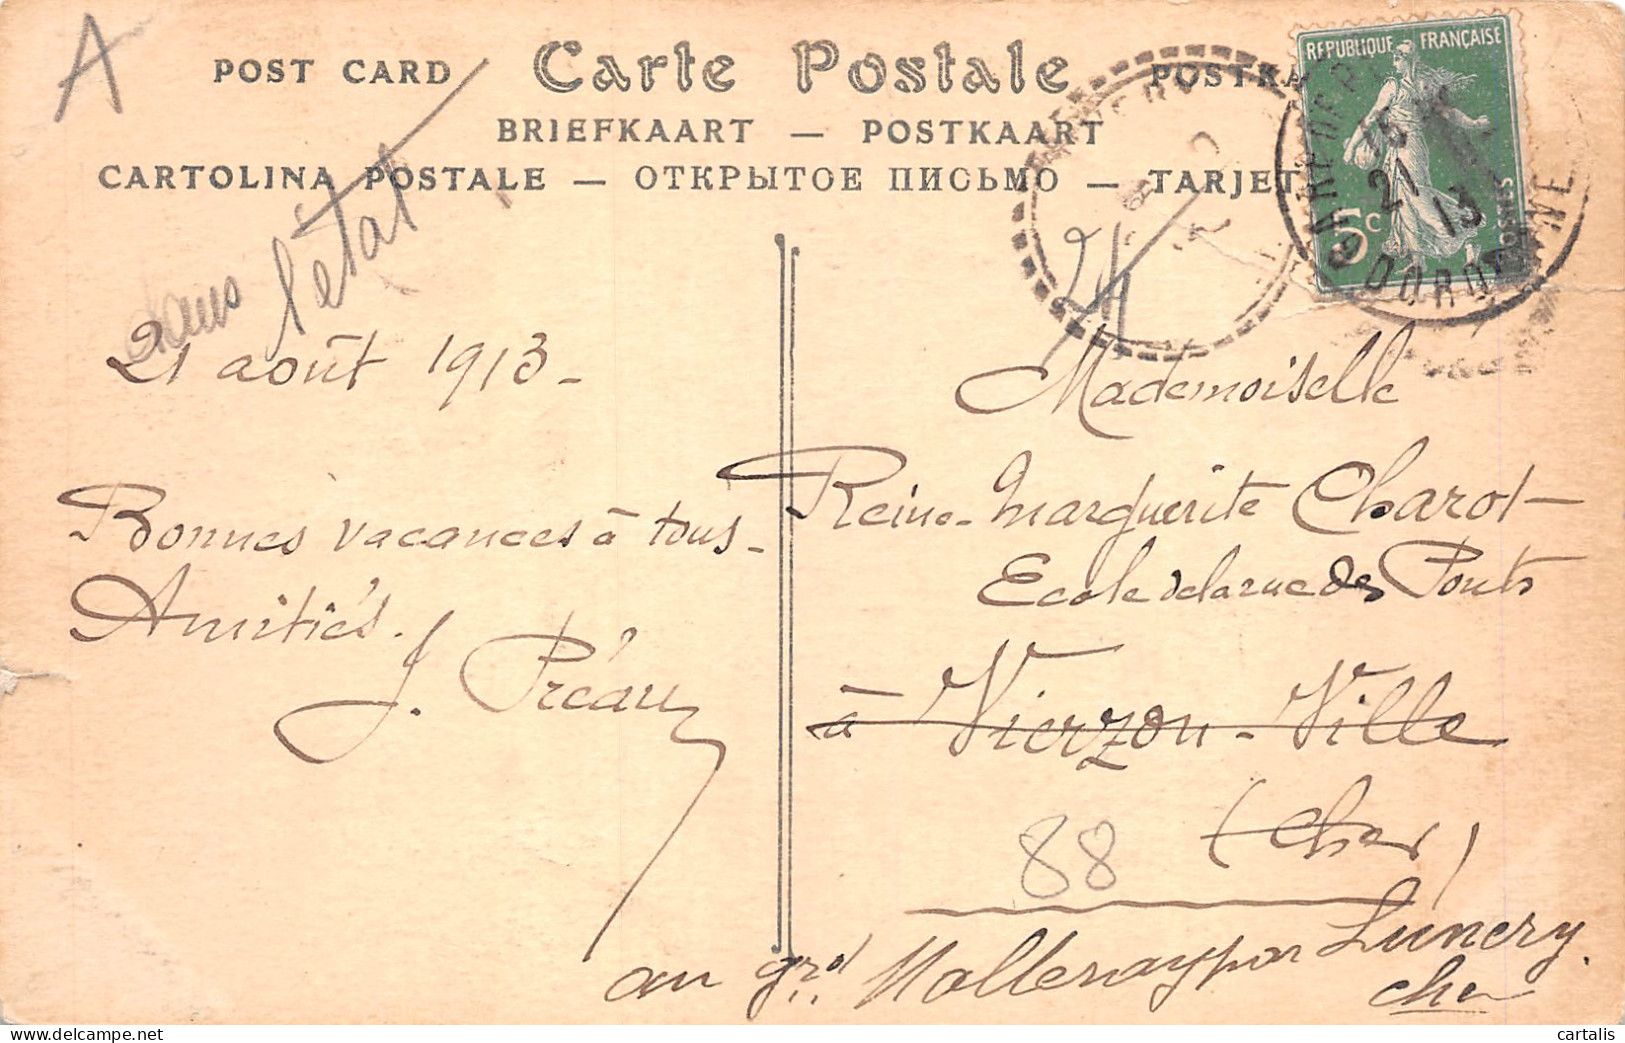 A
POST CARD Carte Postale POSTKA
BRIEFKAART — POSTKAART
CARTOLINA POSTALE — ОТКРЫТОЕ ПИСЬМО — TARJET
REPUBLIQUE FRANÇAISE
5c
15
21
13
DORDOGNE
dans l'état
24
21 août 1913 -
Bonnes vacances à tous -
Amitiés.
J. Préau
Mademoiselle
Reine-Marguerite Charot
Ecole de la rue des Ponts
à Vierzon-Ville
(Cher)
88
au grd Malleray par Lunery.
Cher
cartalis